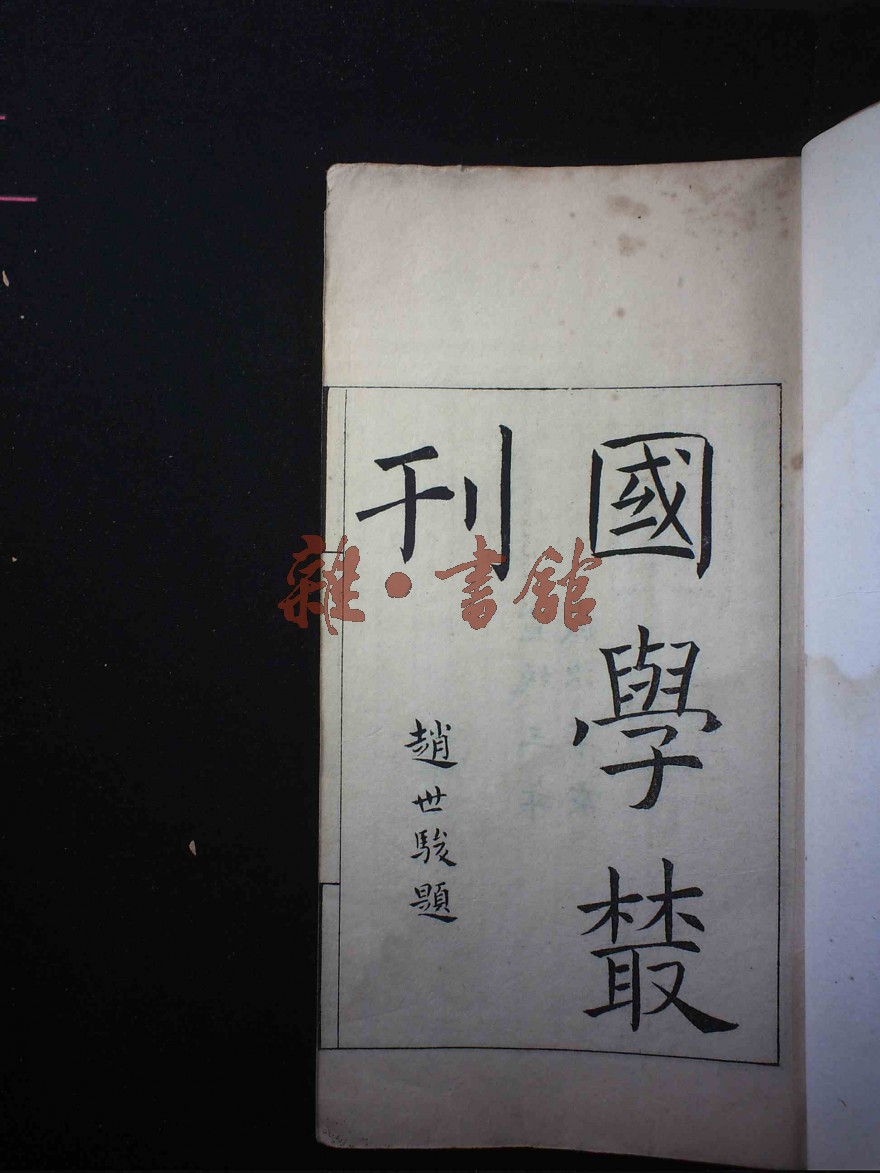 國學藂
刊
趙世駿題
雜·書館